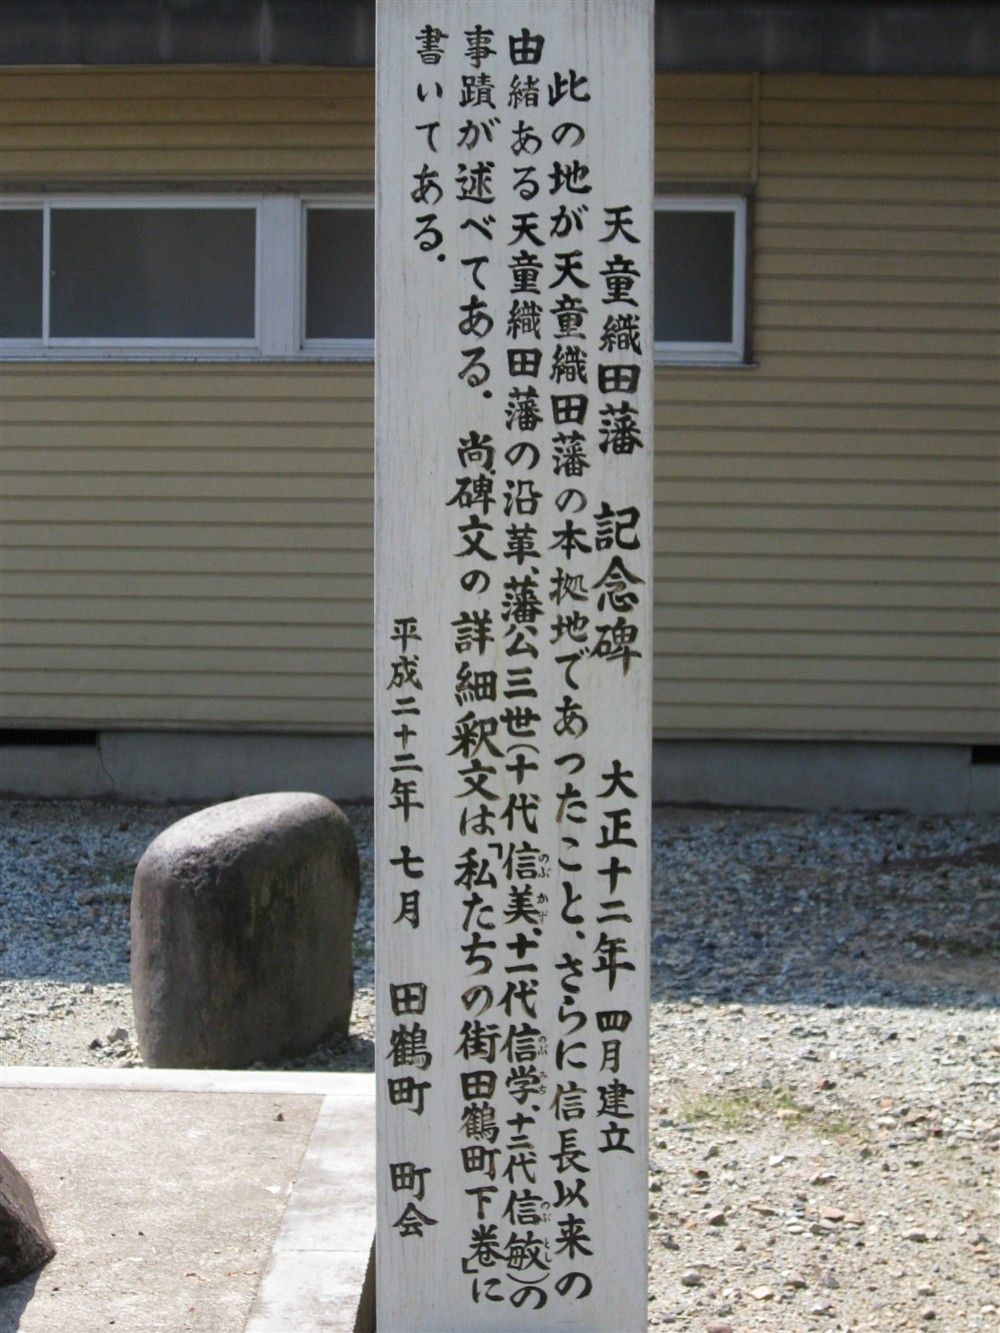 天童織田藩 記念碑 大正十二年 四月建立
此の地が天童織田藩の本拠地であったこと、さらに信長以来の
由緒ある天童織田藩の沿革、藩公三世(十代信美、十一代信学、十二代信敏)の
のぶ かず のぶ みち のぶ とし
事蹟が述べてある。尚碑文の詳細釈文は「私たちの街田鶴町下巻」に
書いてある。
平成二十二年 七月 田鶴町 町会